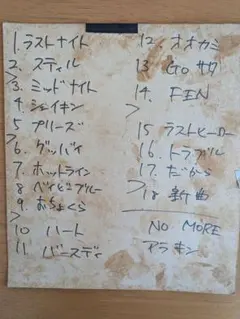 1. ラストナイト
2. スティル
3. ミッドナイト
4 シェイキン
5 プリーズ
6. グッバイ
7. ホットライン
8 ベイビーブルー
9. おちょくら
10 ハート
11 バースディ
12. オオカミ
13 Go サク
14. FIN
15 ラストヒーロー
16. トラブル
17. だから
18 新曲
NO MORE
アラキン